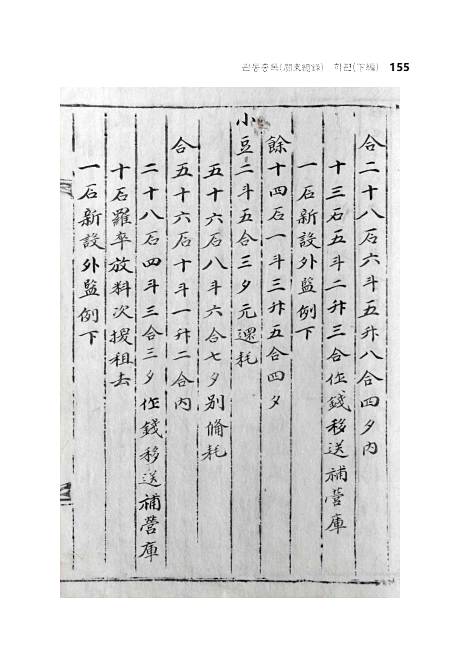 관동총록(關東總錄) 하편(下編) 155
合二十八石六斗五升八合四夕內
十三石五斗二升三合作錢移送補營庫
一石新設外監例下
餘十四石一斗三升五合四夕
小豆二斗五合三夕元還耗
五十六石八斗六合七夕別備耗
合五十六石十斗一升二合內
二十八石四斗三合三夕作錢移送補營庫
十石羅卒放料次援租去
一石新設外監例下